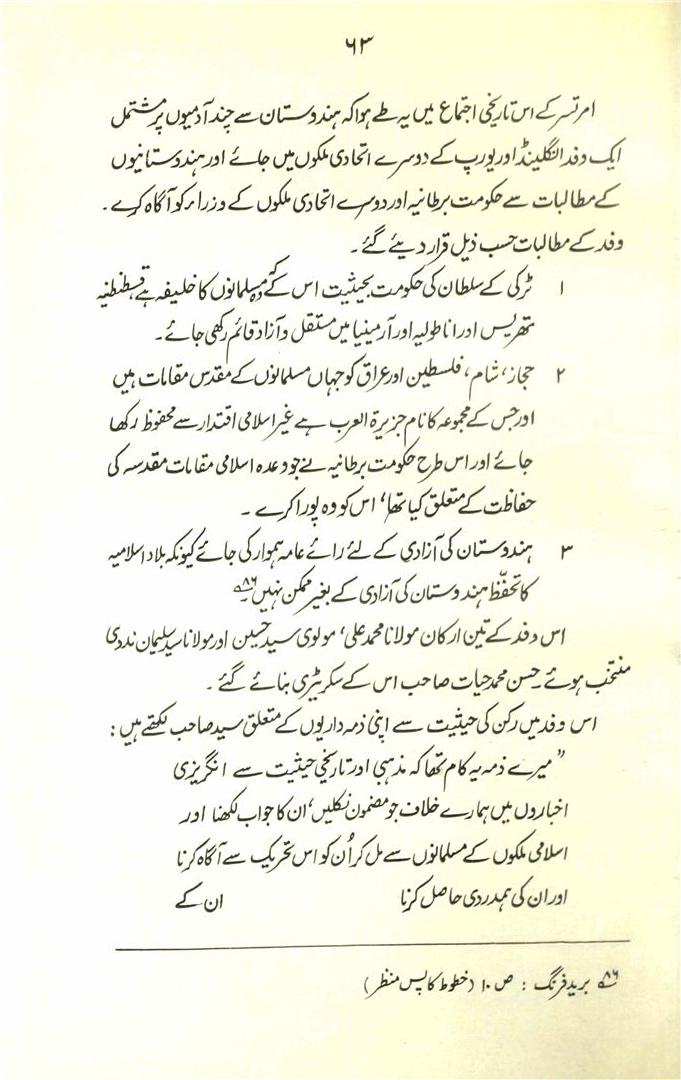 ۶۳
امرتسر کے اس تاریخی اجتماع میں یہ طے ہوا کہ ہندوستان سے چند آدمیوں پر مشتمل
ایک وفد انگلینڈ اور یورپ کے دوسرے اتحادی ملکوں میں جائے اور ہندوستانیوں
کے مطالبات سے حکومت برطانیہ اور دوسرے اتحادی ملکوں کے وزراء کو آگاہ کرے ۔
وفد کے مطالبات حسب ذیل قرار دیئے گئے ۔
۱ ترکی کے سلطان کی حکومت بحیثیت اس کے کہ وہ مسلمانوں کا خلیفہ ہے قسطنطنیہ
تھریس اور اناطولیہ اور آرمینیا میں مستقل و آزاد قائم رکھی جائے ۔
۲ حجاز، شام، فلسطین اور عراق کو جہاں مسلمانوں کے مقدس مقامات ہیں
اور جس کے مجموعہ کا نام جزیرۃ العرب ہے غیر اسلامی اقتدار سے محفوظ رکھا
جائے اور اس طرح حکومت برطانیہ نے جو وعدہ اسلامی مقامات مقدسہ کی
حفاظت کے متعلق کیا تھا، اس کو وہ پورا کرے ۔
۳ ہندوستان کی آزادی کے لئے رائے عامہ ہموار کی جائے کیونکہ بلاد اسلامیہ
کا تحفّظ ہندوستان کی آزادی کے بغیر ممکن نہیں ۸۶؎
اس وفد کے تین ارکان مولانا محمد علی، مولوی سید حسین اور مولانا سید سلیمان ندوی
منتخب ہوئے ۔ حسن محمد حیات صاحب اس کے سکریٹری بنائے گئے ۔
اس وفد میں رکن کی حیثیت سے اپنی ذمہ داریوں کے متعلق سید صاحب لکھتے ہیں :
” میرے ذمہ یہ کام تھا کہ مذہبی اور تاریخی حیثیت سے انگریزی
اخباروں میں ہمارے خلاف جو مضمون نکلیں، ان کا جواب لکھنا اور
اسلامی ملکوں کے مسلمانوں سے مل کر اُن کو اس تحریک سے آگاہ کرنا
اور ان کی ہمدردی حاصل کرنا ان کے
۸۶؎ برید فرنگ : ص ۱۰ (خطوط کا پس منظر)